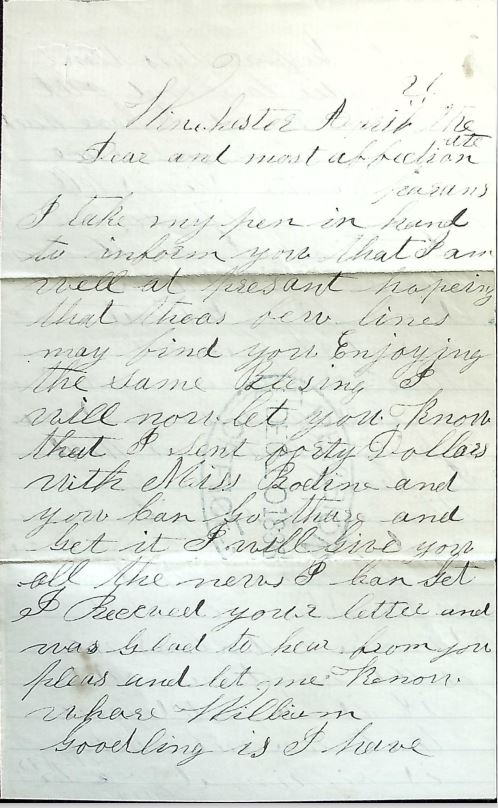 21
Winchester April the
Dear and most affection
ate
I take my pen in hand
to inform you that I am
well at presant hopeing
that theas few lines
may find you Enjoying
the same I
will now let you know
that I sent forty Dollars
with Miss Bodine and
you can go thare and
get it I will give you
all the news I can get
I Received your letter and
was glad to hear from you
pleas and let me know
whare William
Goodling is I have